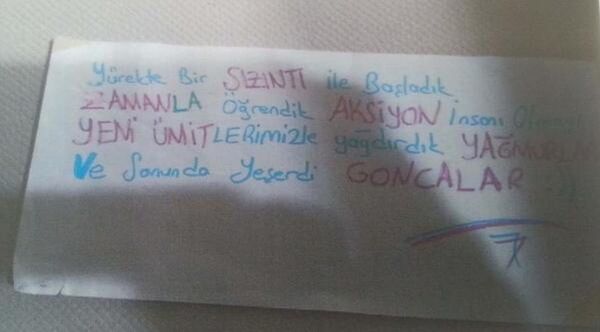 Yürekte Bir SIZINTI ile Başladık
ZAMANLA Öğrendik AKSİYON insanı
YENİ ÜMİTLERimizle yağdırdık
Ve Sonunda Yeşerdi GONCALAR :)